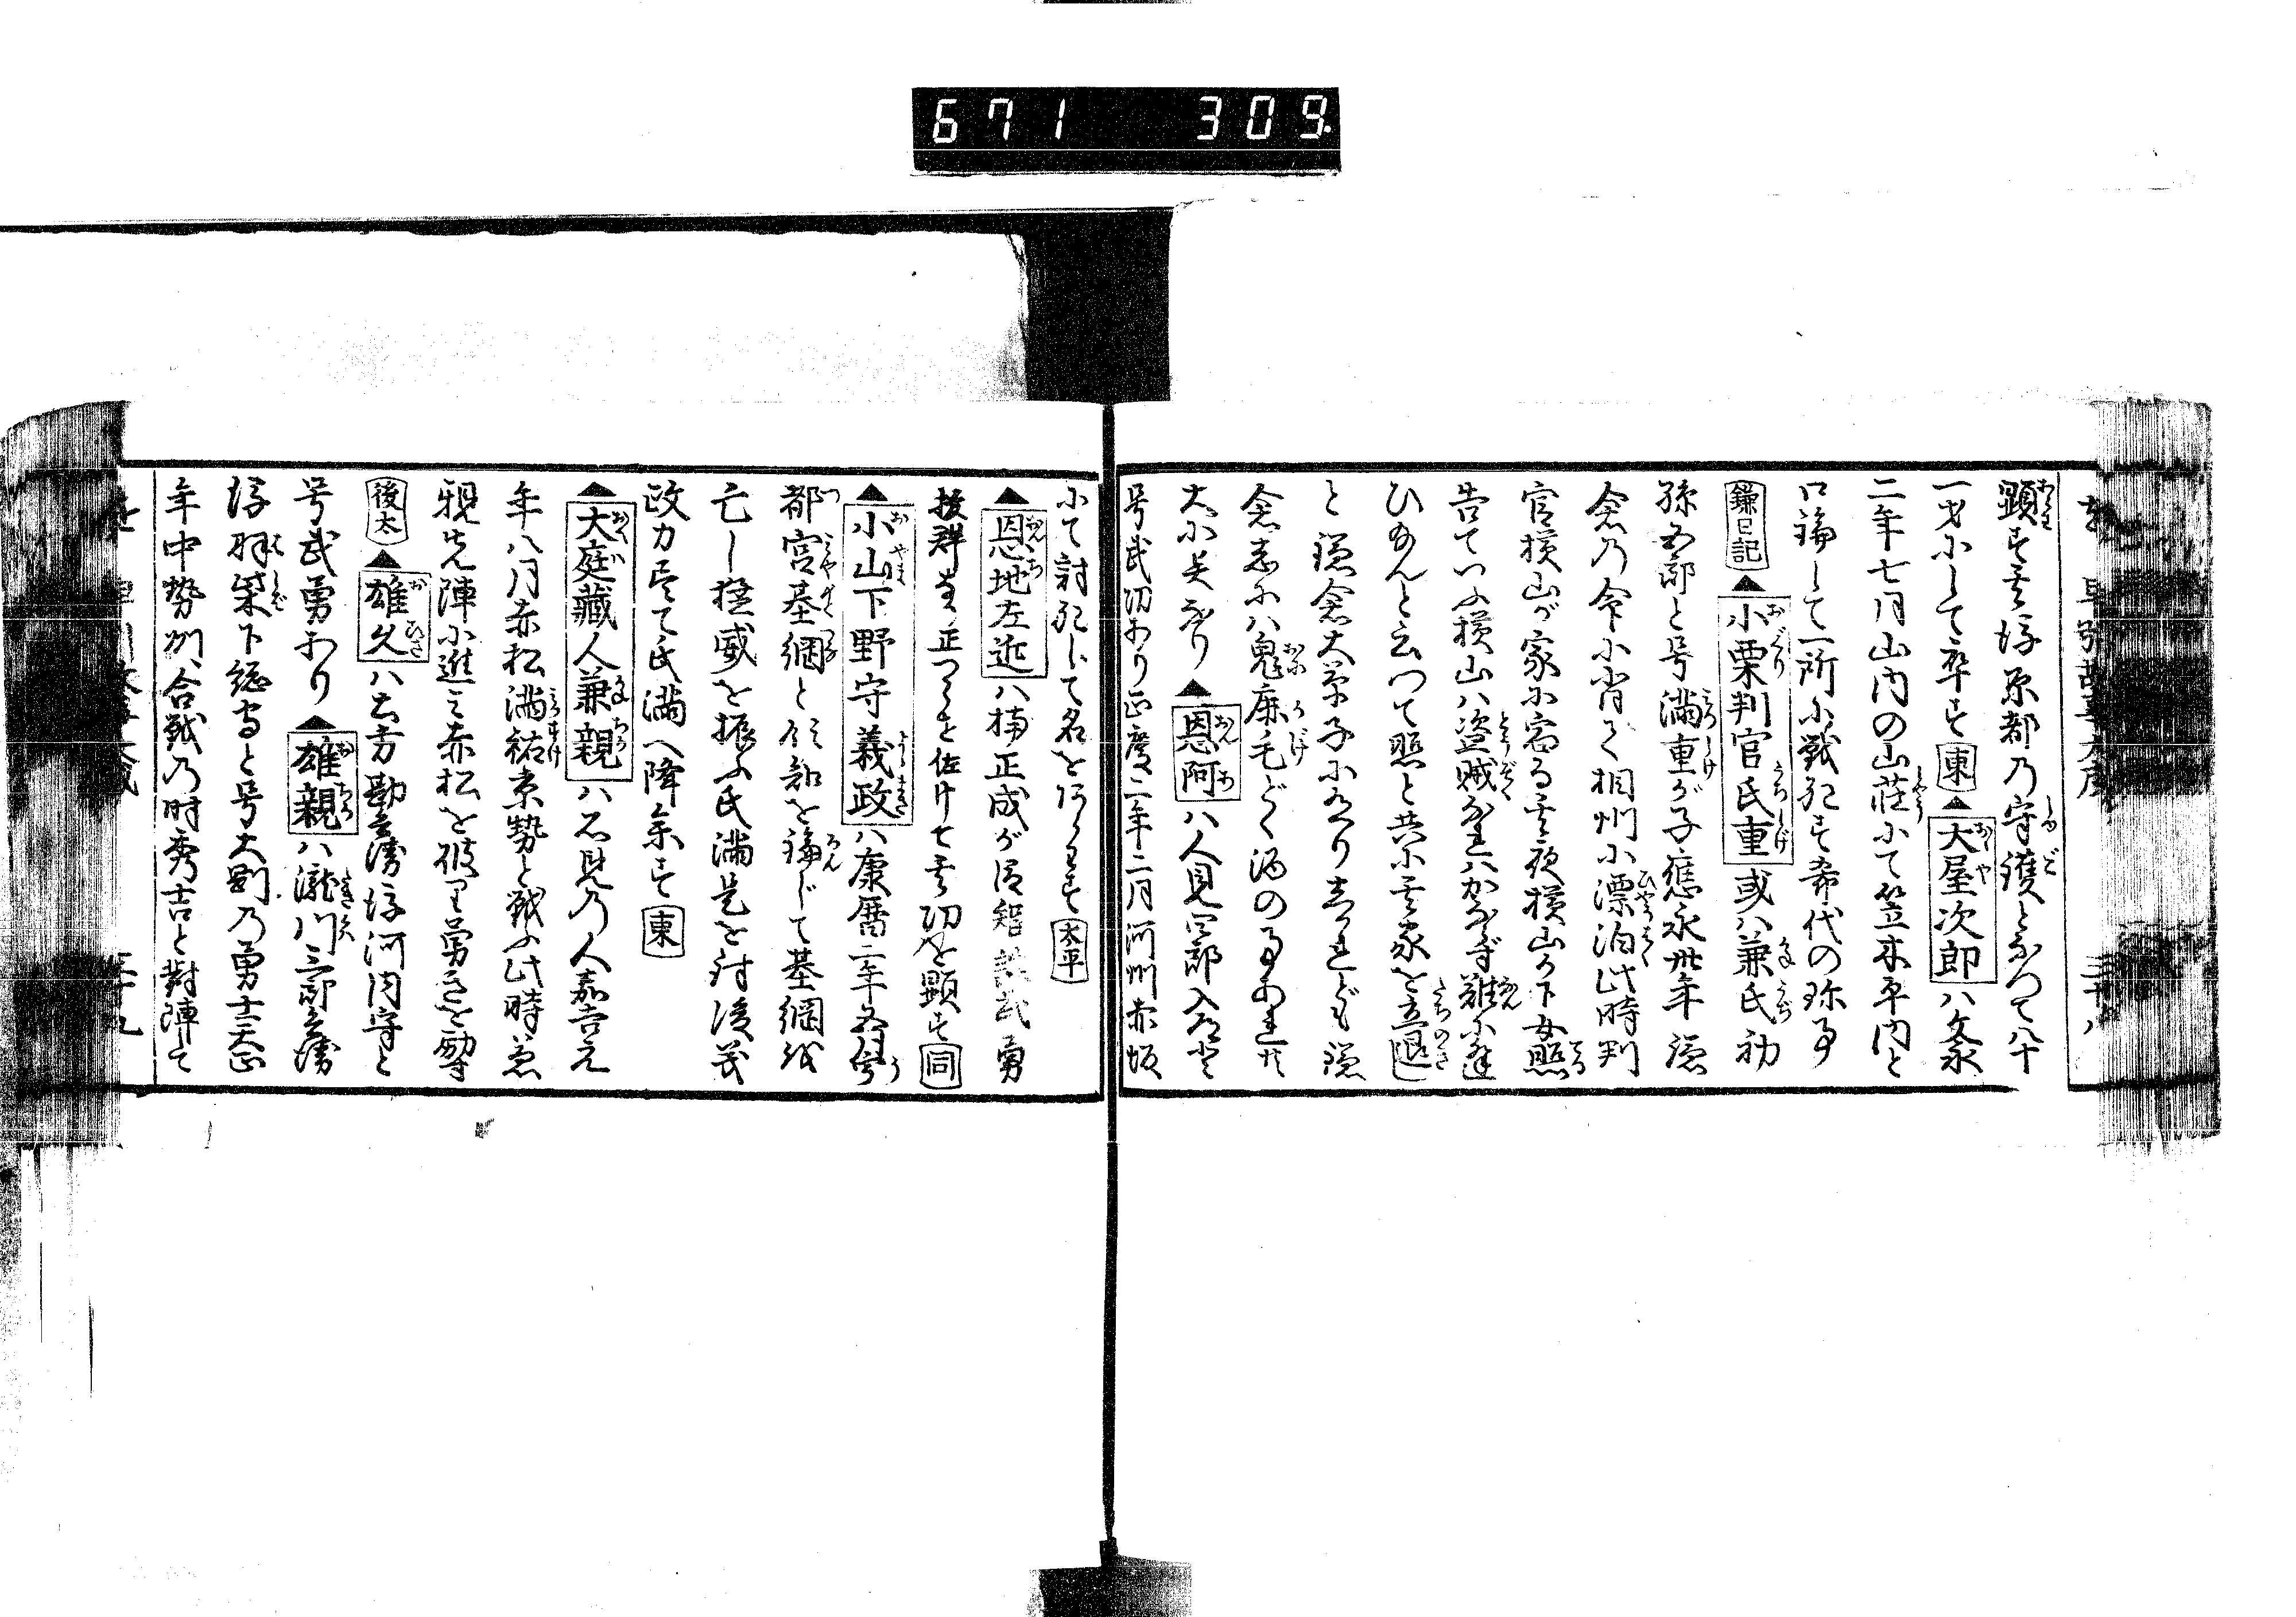 671 309
顕す其後京都の守護となつて八十
一才にして卒す 東 ▲大屋次郎ハ文永
二年七月山内の山荘にて笠木平内と
口論して一所に戦死す希代の珍事
鎌日記 ▲小栗判官氏重 或ハ兼氏初
孫五郎と号満重が子應永卅年鎌
倉の命に背く相州に漂泊此時判
官横山が家に宿る其夜横山が下女照
告ていふ横山ハ盗賊なれハかならず難に逢
ひ給んと云つて照と共に其家を立退
と鎌倉大草子に有り然れども鎌
倉志にハ鬼鹿毛どく酒の事あれ共
大に異なり ▲恩阿ハ人見四郎入道と
号武功あり正慶二年二月河州赤坂
にて討死して名をあらはす 太平
▲恩地左近ハ楠正成が臣智謀武勇
抜群 正つらを佐けて其功を顕す 同
▲小山下野守義政ハ康暦二年宇
都宮基綱と領知を論じて基綱を
亡し猛威を振ふ氏満是を討後義
政力尽て氏満へ降参す 東
▲大庭藏人兼親ハ石見の人嘉吉元
年八月赤松満祐京勢と戦ふ此時兼
親先陣に進ミ赤松を破り勇きを励
後太 ▲雄久ハ土方勘兵衛後河内守と
号武勇あり ▲雄親ハ瀧川三郎兵衛
後羽柴下総守と号大剛の勇士天正
年中勢州合戦の時秀吉と對陣して